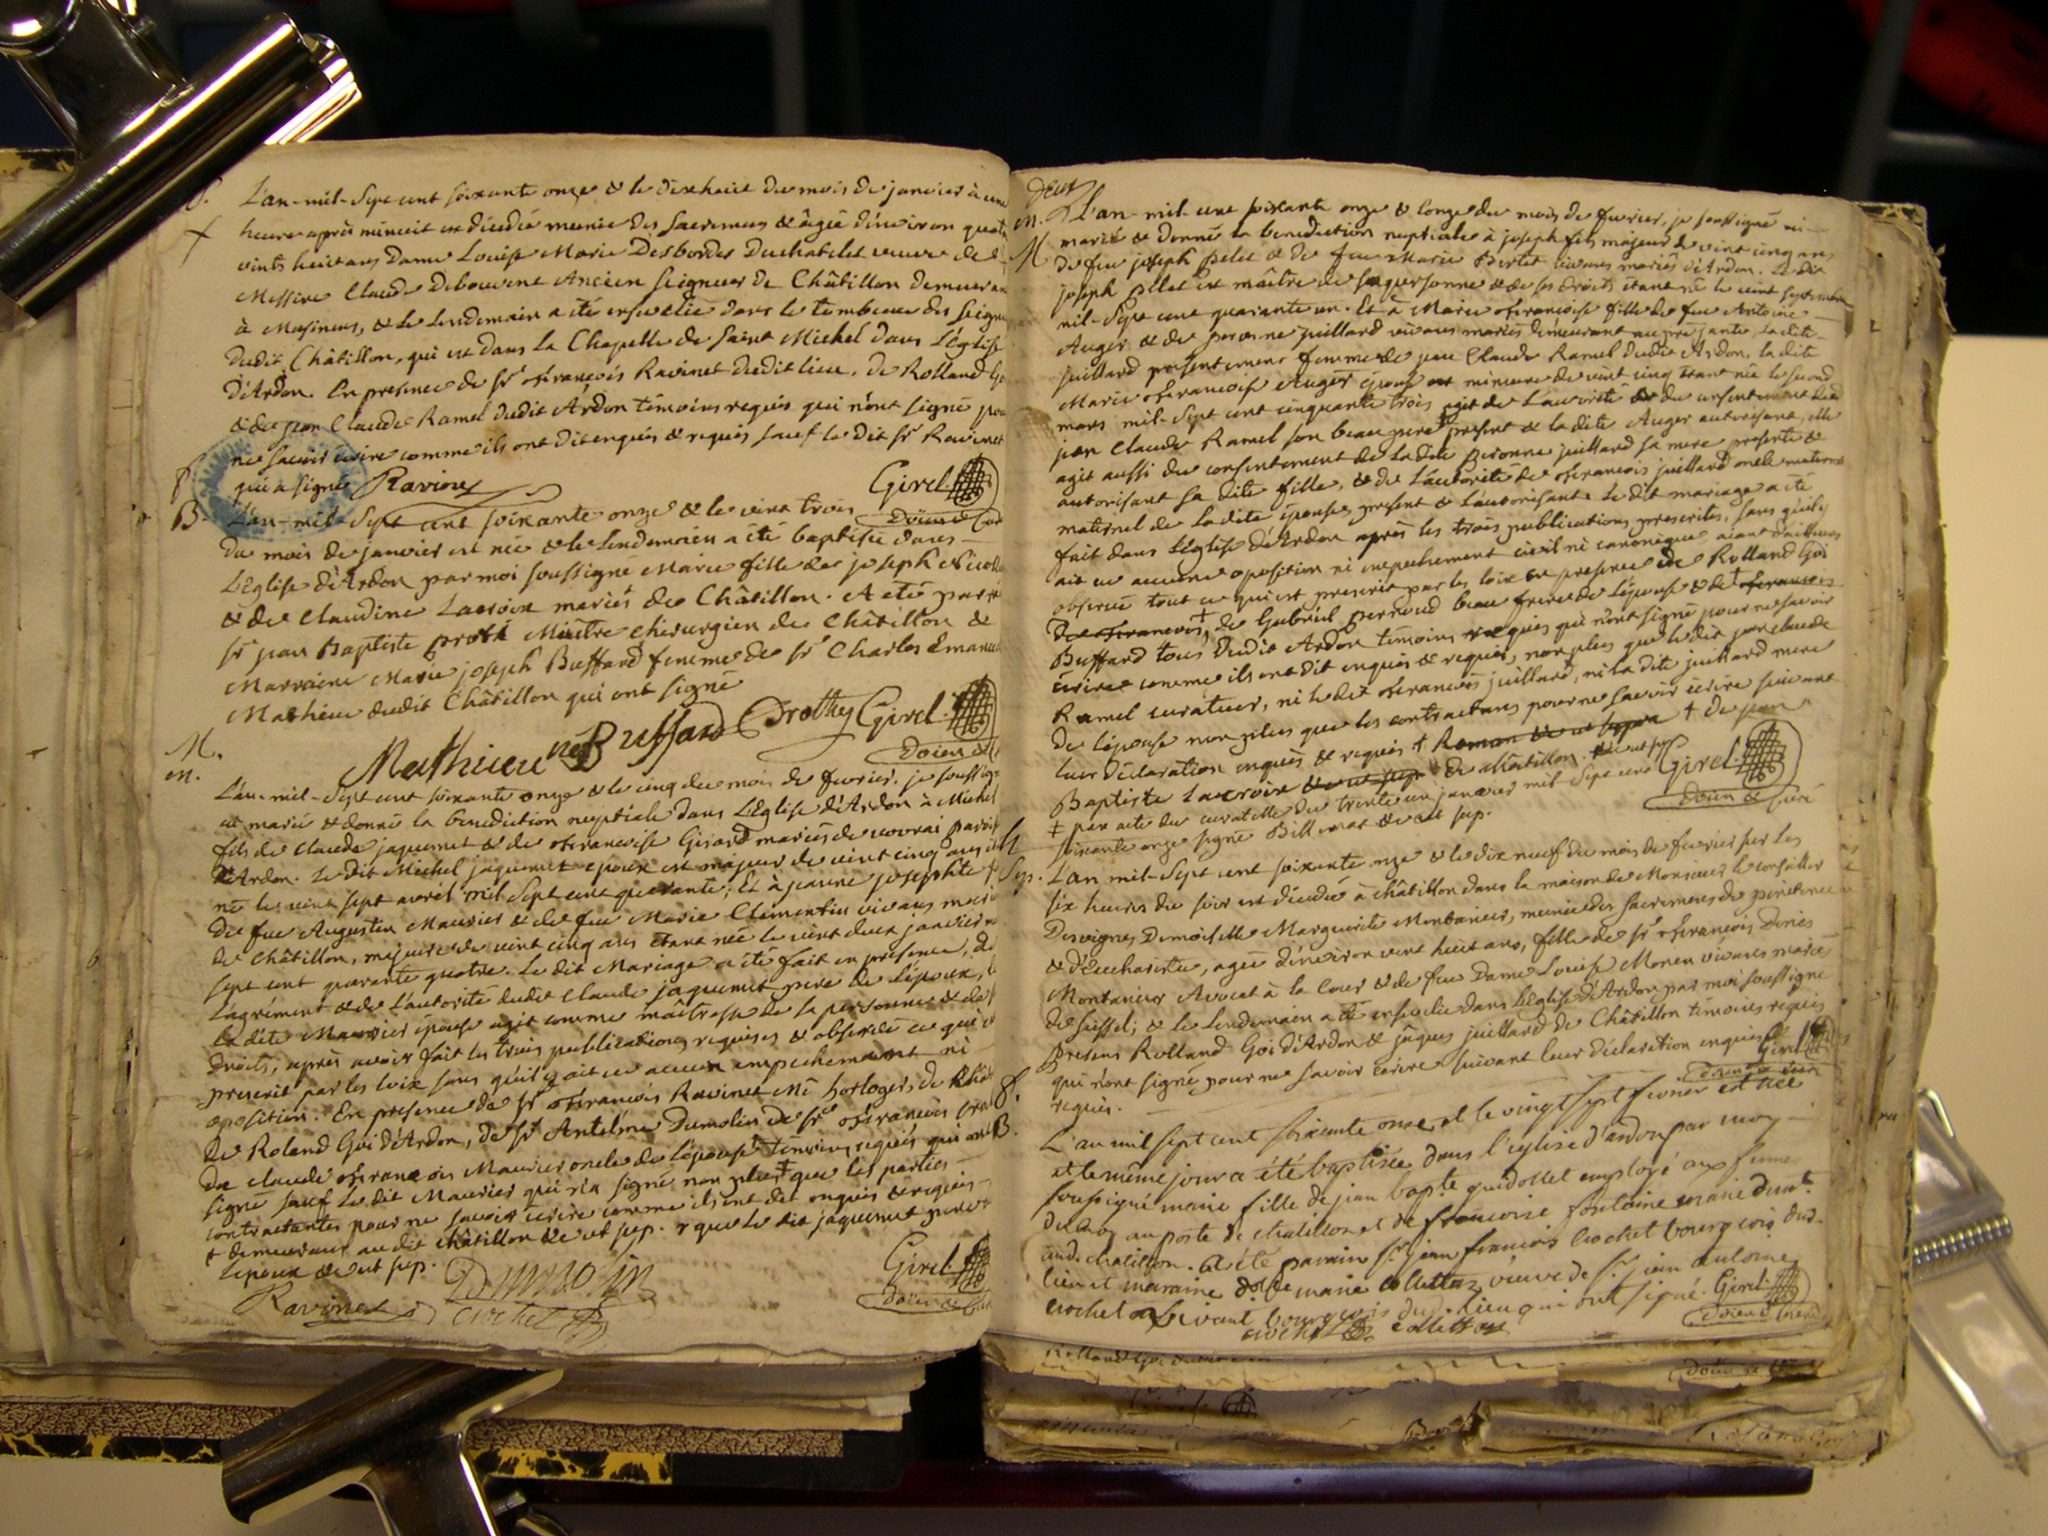 S.
L'an-mil-sept cent soixante onze & le dixhuit du mois de janvier à une
heure après minuit est décédée munie des sacremens & âgée d'environ quatre
vints huit ans dame Louise Marie Desbordes Duchatelet veuve de
Messire Claude Debouvent Ancien seigneur de Châtillon demeurant
à Musinens, & le lendemain a été ensevelie dans le tombeau des seigne
dudit Châtillon, qui est dans la Chapelle de saint Michel dans l'église
d'Ardon. En presence de sr françois Ravinet dudit lieu, de Rolland Goi
& de jean Claude Ramel dudit Ardon témoins requis qui n'ont signé pour
ne savoir écrire comme ils ont dit enquis & requis sauf le dit sr Ravinet
qui a signé Ravinet Girel
doien & curé
B. L'an-mil-sept cent soixante onze & le vint trois
du mois de janvier est née & le lendemain a été baptisée dans
L'église d'Ardon par moi soussigné Marie fille de joseph Nicolla
& de Claudine Lacroix mariés de Châtillon. A été par
sr jean Baptiste Maître chirurgien de Châtillon &
Marraine Marie joseph Buffard femme de sr Charles Emanuel
Mathieu dudit Châtillon qui ont signé
Mathieu née Buffard Girel
doien &
M.
m.
L'an-mil-sept cent soixante onze & le cinq du mois de fevrier, je soussigné
ai marié & donné la benediction nuptiale dans L'Eglise d'Ardon à Michel
fils de Claude jaquemet & de françoise Girard mariés de paroisse
d'Ardon. Le dit Michel jaquemet epoux est majeur de vint cinq ans
né le vint sept avril mil sept cent quarante, Et à jeanne josephte
de feu Augustin Maurier & de feu Marie Clementin vivans mariés
de Châtillon, majeure de vint cinq ans étant née le vint deux janvier
sept cent quarante quatre. Le dit Mariage a été fait en presence, de
L'agrément & de L'autorité dudit Claude jaquemet pere de l'époux,
la dite Maurier épouse agit comme maîtresse de sa personne & de
droits, après avoir fait les trois publications requises & observé ce qui
prescrit par les loix sans qu'il y ait eu aucun empechement ni
oposition. En presence de sr françois Ravinet Me horloger, de Châ
de Roland Goi d'Ardon, de sr Antelme Dumolin de sr françois
de claude françois Maurier oncle de l'épouse témoins requis qui ont
signé sauf le dit Maurier qui n'a signé non plus que les parties
contractantes pour ne savoir écrire comme ils ont dit enquis & requis
+ demeurant audit châtillon & ut sup. que le dit jaquemet pere
l'epoux & ut sup.
Dumolin Girel
Ravinet crochet doien &
deux
m. L'an-mil-cent soixante onze & l'onze du mois de fevrier, je soussigné ai
M marié & donné la benediction nuptiale à joseph fils majeur de vint cinq ans
de feu joseph Pelet & de feu Marie Bertet vivans mariés d'Ardon. Le dit
joseph Pelet est maître de sa personne & de ses droits étant né le vint septembre
mil-sept cent quarante un. Et à Marie françoise fille de feu Antoine
Auger & de peronne juillard vivans mariés demeurant la dite
juillard presentement femme de jean Claude Ramel dudit Ardon, la dite
Marie françoise Auger épouse mineure de vint cinq étant née le second
mars mil-sept cent cinquante trois agit de L'autorité & du consentement de
jean Claude Ramel son beau pere present & la dite Auger autorisant, elle
agit aussi du consentement de la dite peronne juillard sa mere presente &
autorisant sa dite fille, & de L'autorité de françois juillard oncle maternel
maternel de la dite épouse present & l'autorisant. Le dit mariage a été
fait dans L'Eglise d'Ardon après les trois publications prescrites, sans qu'il y
ait eu aucune oposition ni empechement civil ni canonique aiant d'ailleurs
observé tout ce qui est prescrit par les loix en presence de Rolland Goi
de françois, de Gabriel Pernoud beau frere de l'épouse & de françois
Buffard tous dudit Ardon témoins requis qui n'ont signé pour ne savoir
écrire comme ils ont dit enquis & requis, non plus que le dit jean claude
Ramel curateur, ni le dit françois juillard, ni la dite juillard mere
de l'épouse non plus que les contractans pour ne savoir écrire suivant
leur déclaration enquis & requis + de jean
Baptiste Lacroix de châtillon & ut sup. Girel
doien & curé
‡ par acte de curatelle du trente un janvier mil sept cent
soixante onze signé & ut sup.
S
Sep. L'an mil-sept cent soixante onze & le dix neuf du mois de fevrier sur les
six heures du soir est décédée à châtillon dans la maison de Monsieur le conseiller
Desvignes Demoiselle Marguerite Montanier, munie des sacremens de penitence
& d'Eucharistie, agée d'environ vint huit ans, fille de sr françois Denis
Montanier Avocat à la Cour & de feu Dame Louise Monen vivans mariés
de seissel; & le lendemain a été ensevelie dans L'église d'Ardon par moi soussigné
presens Rolland Goi d'Ardon & jâques juillard de Châtillon témoins requis
qui n'ont signé pour ne savoir écrire suivant leur déclaration enquis &
requis. Girel
doien & curé
B. L'an mil sept cent soixante onze et le vingt sept fevrier est née
et le même jour a été baptisée dans l'eglise d'ardon par moy
soussigné marie fille de jean bapte employé aux fermes
du Roy au poste de chatillon et de françoise fontaine mariés
aud. chatillon. a été parain sr jean françois crochet bourgeois dud.
lieu et maraine dlle marie collettaz veuve de sr jean antoine
crochet a Son vivant bourgeois dud. lieu qui ont signé. Girel
crochet collettaz doien & curé